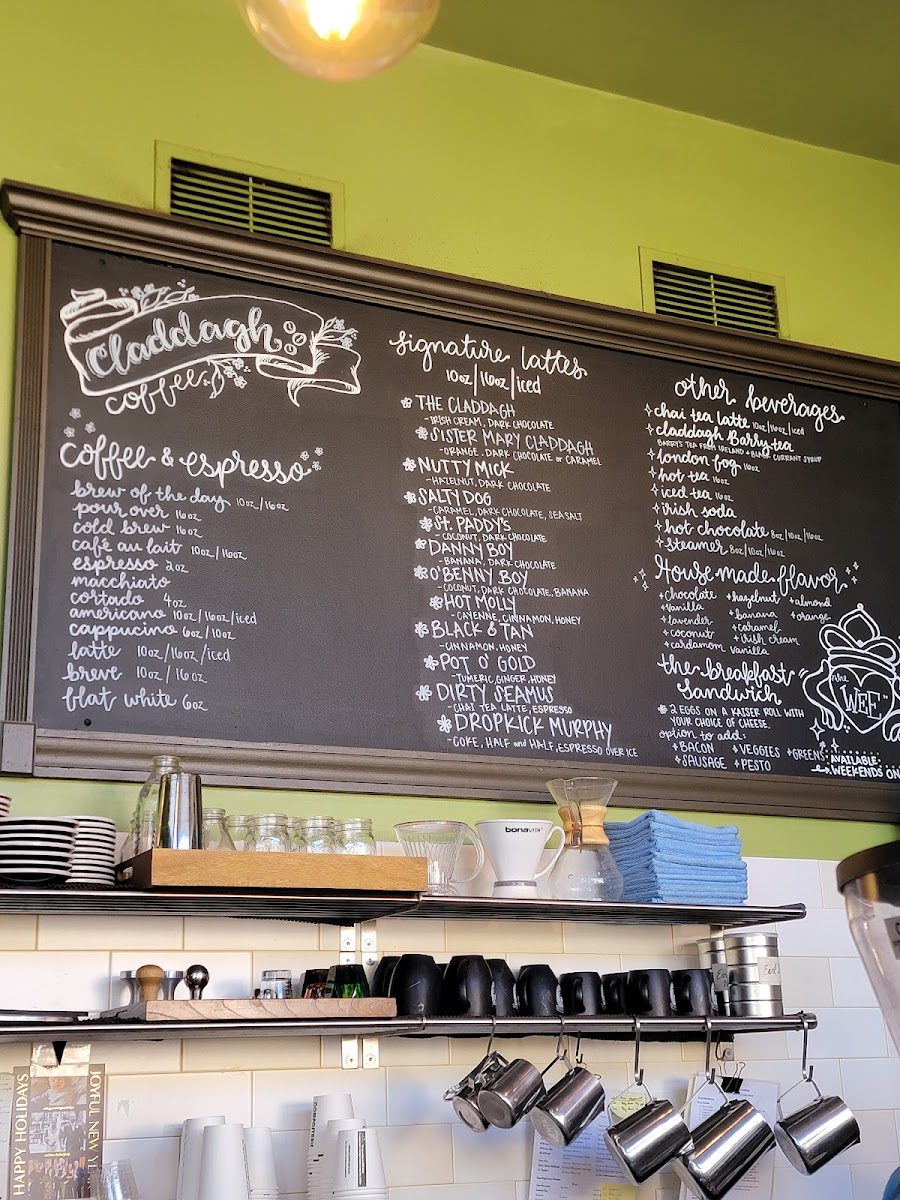 Claddagh
coffee
coffee & espresso
brew of the day 10oz/16oz
pour over 16oz
cold brew 16oz
café au lait 10oz/16oz
espresso 2oz
macchiato
cortado 4oz
americano 10oz/16oz/iced
cappucino 6oz/10oz
latte 10oz/16oz/iced
breve 10oz/16oz
flat white 6oz
signature lattes
10oz/16oz/iced
THE CLADDAGH
-IRISH CREAM, DARK CHOCOLATE
SISTER MARY CLADDAGH
-ORANGE, DARK CHOCOLATE or CARAMEL
NUTTY MICK
-HAZELNUT, DARK CHOCOLATE
SALTY DOG
-CARAMEL, DARK CHOCOLATE, SEA SALT
ST. PADDY'S
-COCONUT, DARK CHOCOLATE
DANNY BOY
-BANANA, DARK CHOCOLATE
O'BENNY BOY
-COCONUT, DARK CHOCOLATE, BANANA
HOT MOLLY
-CAYENNE, CINNAMON, HONEY
BLACK & TAN
-CINNAMON, HONEY
POT O' GOLD
-TUMERIC, GINGER, HONEY
DIRTY SEAMUS
-CHAI TEA LATTE, ESPRESSO
DROPKICK MURPHY
-COKE, HALF and HALF, ESPRESSO OVER ICE
other beverages
chai tea latte 10oz/16oz/iced
claddagh Barry tea
BARRY'S TEA FROM IRELAND + BLACK CURRANT SYRUP
london fog 16oz
hot tea 16oz
iced tea 16oz
irish soda
hot chocolate 8oz/10oz/16oz
steamer 8oz/10oz/16oz
House made flavor
+chocolate +hazelnut +almond
+vanilla +banana +orange
+lavender +caramel
+coconut +irish cream
+cardamom vanilla
the breakfast
sandwich
2 EGGS ON A KAISER ROLL WITH
YOUR CHOICE OF CHEESE
option to add:
+BACON +VEGGIES +GREENS
+SAUSAGE +PESTO
the
"WEE"
AVAILABLE
WEEKENDS ON
bonaVITA
HAPPY HOLIDAYS
JOYFUL NEW